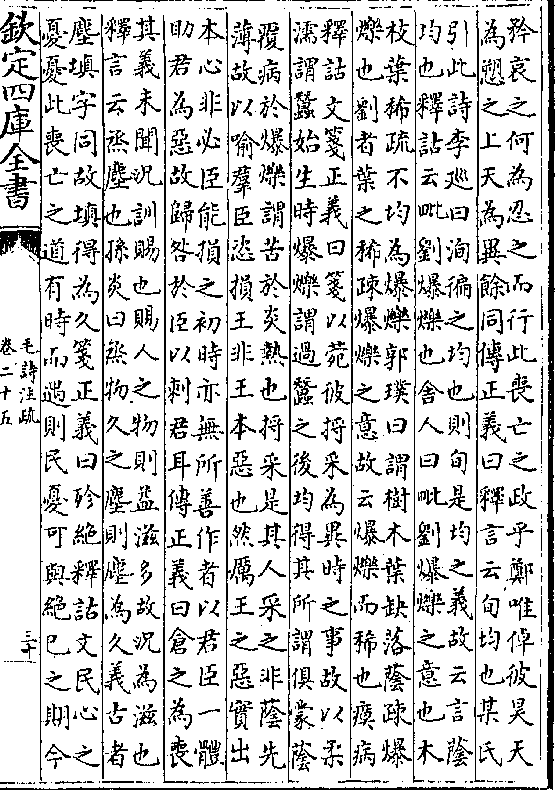 矜哀之何為忍之而行此喪亡之政乎鄭唯倬彼昊天
為愬之上天為異餘同傳正義曰釋言云旬均也某氏
引此詩李巡曰洵徧之均也則旬是均之義故云言蔭
均也釋詁云毗劉爆爍也舍人曰毗劉爆爍之意也木
枝葉稀疏不均為爆爍郭璞曰謂樹木葉缺落蔭疎爆
爍也劉者葉之稀疎爆爍之意故云爆爍而稀也瘼病
釋詁文箋正義曰箋以菀彼捋采為異時之事故以柔
濡謂蠶始生時爆爍謂過蠶之後均得其所謂俱蒙蔭
覆病於爆爍謂苦於炎熱也捋采是其人采之非蔭先
薄故以喻羣臣恣損王非王本惡也然厲王之惡實出
本心非必臣能損之初時亦無所善作者以君臣一體
助君為惡故歸咎於臣以刺君耳傳正義曰倉之為喪
其義未聞況訓賜也賜人之物則益滋多故況為滋也
釋言云烝塵也孫炎曰烝物久之塵則塵為久義古者
塵填字同故填得為久箋正義曰殄絕釋詁文民心之
憂憂此喪亡之道有時而遇則民憂可與絕已之期今
欽定四庫全書
毛詩注疏
卷二十五
三十